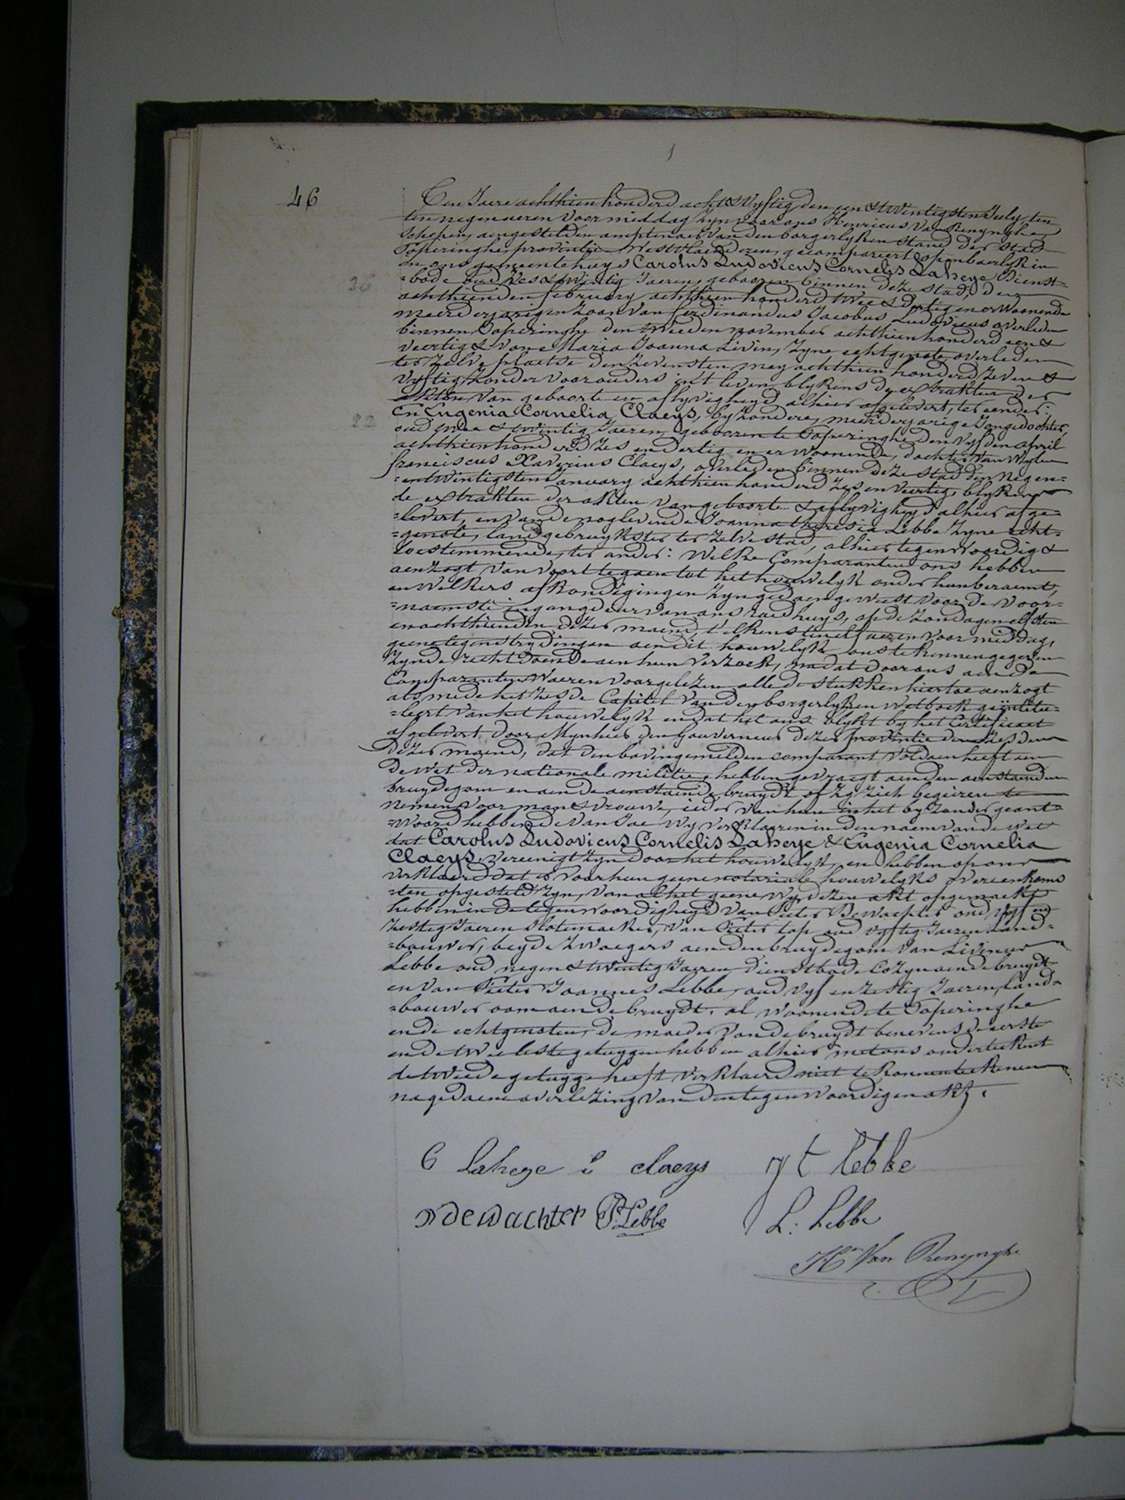 46
Ten Jaere achthien honderd acht & vyftig den een & twintigsten July, ten
ten negen ueren voormiddag, zyn voor ons Henricus Van Renynghe
Schepen, aengestelden amptenaer van den borgerlyken stand der Stad
Poperinghe, provintie Westvlaenderen, gecompareert openbaerlyk in
ons gemeentehuys Carolus Ludovicus Cornelis Laheye, Dienst-
26
=bode oud zes & twintig Jaeren, geboren binnen deze stad, den
achthienden february achthien honderd twee & dertig en er Woonende
meerderjarigen zoon van Ferdinandus Jacobus Ludovicus overleden
binnen Poperinghe den tweeden november achthien honderd een &
veertig & van Maria Joanna Livin, Zyne echtgenote overleden
ter zelve plaetse den zevensten mey achthien honderd zeven &
vyftig, zonder voorouders in't leven, blykens de extrakten der
akten van geboorte en aflyvigheyd alhier afgelevert, ter eender;
22
En Eugenia Cornelia Claeys, byzondere, meerderjarige Jongedochter,
oud twee & twintig Jaeren, geboren te Poperinghe den vyfden april
achthien honderd zes en dertig en er woonende, dochter van Wylen
franciscus Xaverius Claeys, overleden binnen deze stad den negen-
=entwintigsten January achthien honderd zes en veertig, blykens
de extrakten der akten van geboorte & aflyvigheyd alhier afge-
=levert, en van de nog levende Joanna Theresia Lebbe Zyne echt-
=genote, landgebruykster ter zelve stad, alhier tegenwoordig &
toestemmende, ter ander: Welke Comparanten ons hebben
aenzogt van voort te gaen tot het houwelyk onder hun beraemt,
en Welkers afkondigingen zyn gedaen geweest voor de voor-
=naemste ingangdeur van ons raedhuys, op de zondagen elfsten
en achthienden dezer maend, t'elkens ten elf ueren voormiddag,
geene tegenstrydingen aen dit houwelyk ons te kennen gegeven
zynde, recht doende aen hun verzoek, nadat door ons aen de
Comparanten Waeren voorgelezen alle de stukken hiertoe aenzogt
als mede het zesde Capitel van den borgerlyken wetboek geïntitu-
=leert van het houwelyk en dat het ons blykt by het Certificaet
afgelevert door Mynheer den Gouverneur dezer provintie den zesden
dezer maend, dat den bovingemelden comparant voldaen heeft aen
de wet der nationale militie, hebben gevraegt aen den aenstaenden
bruydegom en aen de aenstaende bruydt of zy zich begeiren te
nemen voor man & vrouwe, ieder van hun in het byzonder geant-
=woord hebbende Van Jae Wy verklaeren in den naem van de wet
dat Carolus Ludovicus Cornelis Laheye & Eugenia Cornelia
Claeys vereenigt zyn door het houwelyk, en hebben op ons
verklaerd dat er voor hun geene notariale houwelyks overeenkoms-
=ten opgesteld zyn, van al het geene Wy dezen akt opgemaekt
hebben in de tegenwoordigheyd van Pieter Dewachter oud, vyf en
zestig Jaeren slotemaeker, van Pieter Top oud vyftig Jaeren Land-
=bouwer, beyde zwaegers aen den bruydegom van Livinus
Lebbe oud negen & twintig Jaeren dienstbode Cozyn aen de bruydt
en van Pieter Joannes Lebbe, oud vyf en zestig Jaeren, land-
=bouwer oom aen de bruydt, al woonende te Poperinghe
en de echtgenoten, de moeder van de bruydt benevens de eerste
en de twee leste getuygen hebben alhier met ons onderteekent
de tweede getuyge heeft verklaerd niet te konnen teekenen
na gedaene overlezing van den tegenwoordigen akt.
C Laheye E claeys J t lebbe
P dewachter P: Lebbe L. Lebbe
Hri Van Renynghe